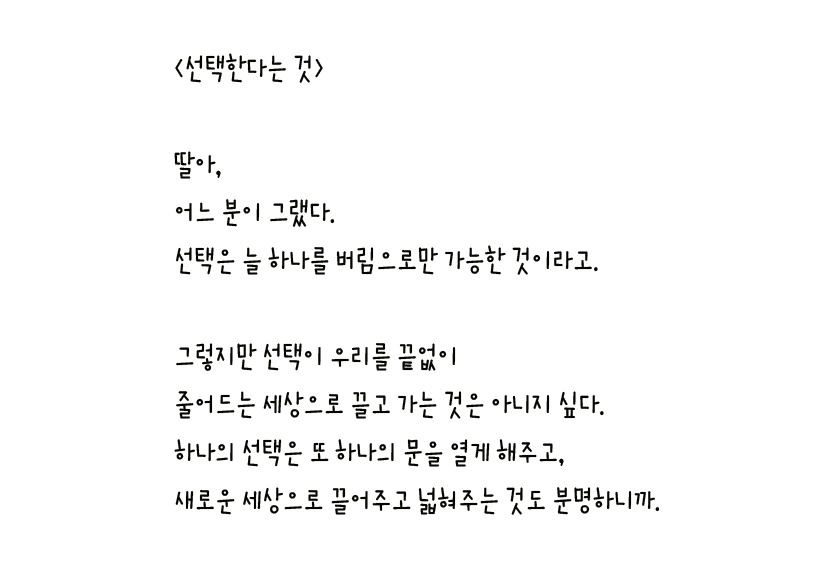 <선택한다는 것>
딸아,
어느 분이 그랬다.
선택은 늘 하나를 버림으로만 가능한 것이라고.
그렇지만 선택이 우리를 끝없이
줄어드는 세상으로 끌고 가는 것은 아니지 싶다.
하나의 선택은 또 하나의 문을 열게 해주고,
새로운 세상으로 끌어주고 넓혀주는 것도 분명하니까.